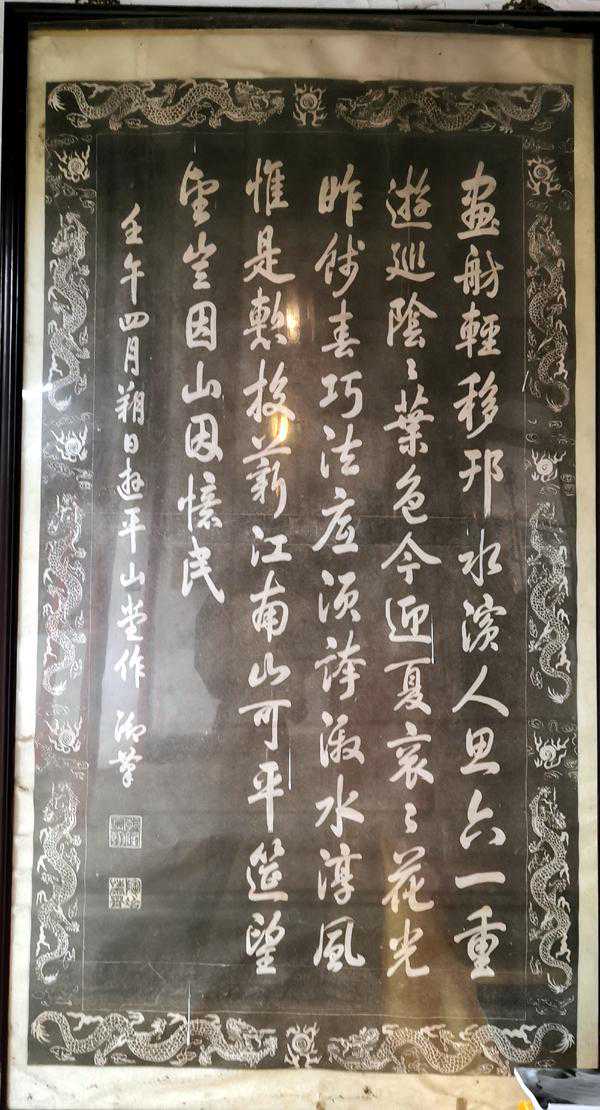 畫舫輕移邗水濱人思六一重
遊巡陰〻葉色今迎夏衮〻花光
昨餞春巧法底須誇激水淳風
惟是投薪江南山可平筵望
望豈因山因憶民
壬午四月朔日遊平山堂作 御筆